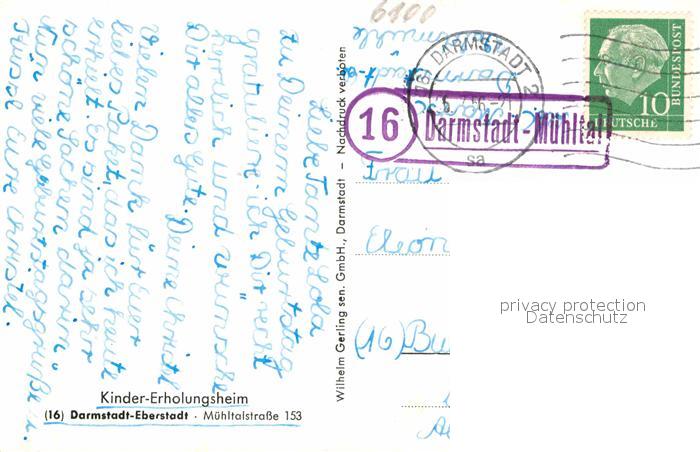 6100
Liebe Tante Lola
zu Deinem Geburtstag
gratuliere ich Dir recht
herzlich und wünsche
Dir alles gute. Deine Christel
Vielen Dank für Euer
liebes Paket, das ich heute
erhielt. Es sind ja sehr
schöne Sachen darin.
Nun viele Geburtstagsgrüße u.
Eure Christel.
Kinder-Erholungsheim
(16) Darmstadt-Eberstadt · Mühltalstraße 153
Wilhelm Gerling sen. GmbH., Darmstadt – Nachdruck verboten
(16) DARMSTADT 2
sa
16 Darmstadt-Mühltal
DEUTSCHE BUNDESPOST
10
Frau
(16) Bu
privacy protection
Datenschutz